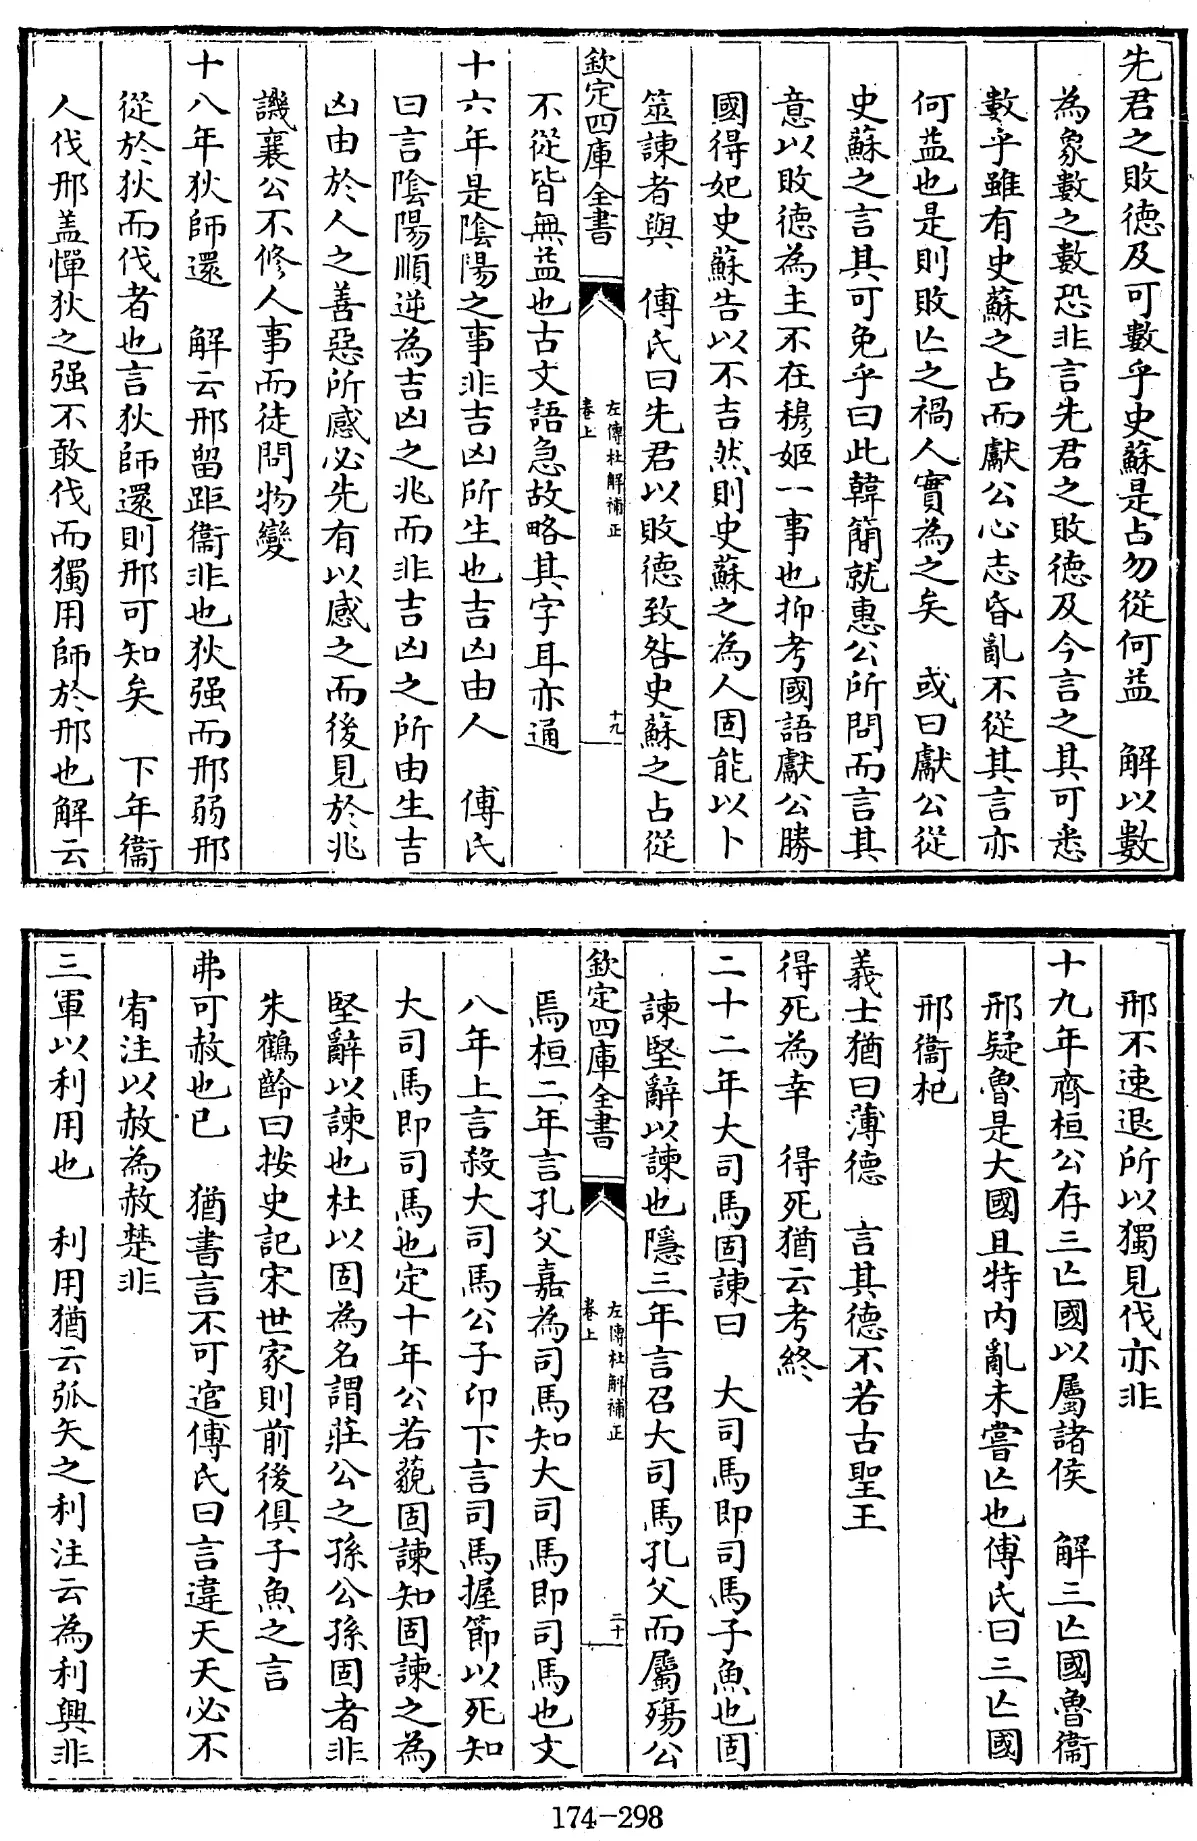 先君之敗德及可數乎史蘇是占勿從何益　解以數
為象數之數恐非言先君之敗德及今言之其可悉
數乎雖有史蘇之占而獻公心志昏亂不從其言亦
何益也是則敗亾之禍人實為之矣　或曰獻公從
史蘇之言其可免乎曰此韓簡就惠公所問而言其
意以敗德為主不在穆姬一事也抑考國語獻公勝
國得妃史蘇告以不吉然則史蘇之為人固能以卜
筮諫者與　傅氏曰先君以敗德致咎史蘇之占從
欽定四庫全書
左傳杜解補正
卷上
十九
不從皆無益也古文語急故略其字耳亦通
十六年是陰陽之事非吉凶所生也吉凶由人　傅氏
曰言陰陽順逆為吉凶之兆而非吉凶之所由生吉
凶由於人之善惡所感必先有以感之而後見於兆
譏襄公不修人事而徒問物變
十八年狄師還　解云邢留距衞非也狄强而邢弱邢
從於狄而伐者也言狄師還則邢可知矣　下年衞
人伐邢盖憚狄之强不敢伐而獨用師於邢也解云
邢不速退所以獨見伐亦非
十九年齊桓公存三亾國以屬諸侯　解三亾國魯衞
邢疑魯是大國且特内亂未嘗亾也傅氏曰三亾國
邢衞杞
義士猶曰薄德　言其德不若古聖王
得死為幸　得死猶云考終
二十二年大司馬固諫曰　大司馬即司馬子魚也固
諫堅辭以諫也隱三年言召大司馬孔父而屬殤公
欽定四庫全書
左傳杜解補正
卷上
二十
焉桓二年言孔父嘉為司馬知大司馬即司馬也文
八年上言殺大司馬公子卬下言司馬握節以死知
大司馬即司馬也定十年公若藐固諫知固諫之為
堅辭以諫也杜以固為名謂莊公之孫公孫固者非
朱鶴齡曰按史記宋世家則前後俱子魚之言
弗可赦也已　猶書言不可逭傅氏曰言違天天必不
宥注以赦為赦楚非
三軍以利用也　利用猶云弧矢之利注云為利興非
174-298